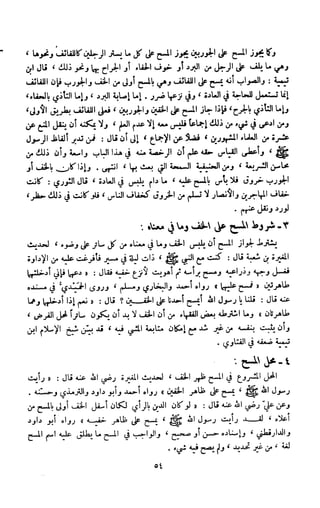 وكما يجوز المسح على الجوربين يجوز المسح على كل ما يستر الرجلين كاللفائف ونحوها ،
وهي ما يلف على الرجل من البرد أو خوف الحفاء أو لجراح بها ونحو ذلك ، قال ابن
تيمية : والصواب أنه يمسح على اللفائف وهي بالمسح أولى من الخف والجورب فإن اللفائف
إنما تستعمل للحاجة في العادة ، وفي نزعها ضرر . إما إصابة البرد ، وإما التأذي بالحفاء ،
وإما التأذي بالجرح ، فإذا جاز المسح على الخفين والجوربين ، فعلى اللفائف بطريق الأولى ،
ومن ادعى في شيء من ذلك إجماعا فليس معه إلا عدم العلم ، ولا يمكنه أن ينقل المنع عن
عشرة من العلماء المشهورين ، فضلا عن الإجماع ، إلى أن قال : فمن تدبر ألفاظ الرسول
ﷺ ، وأعطى القياس حقه علم أن الرخصة منه في هذا الباب واسعة وأن ذلك من
محاسن الشريعة ، ومن الحنيفية السمحة التي بعث بها ، انتهى . وإذا كان بالخف أو
الجورب خروق فلا بأس بالمسح عليه ، ما دام يلبس في العادة ، قال الثوري : كانت
خفاف المهاجرين والأنصار لا تسلم من الخروق كخفاف الناس ، فلو كان في ذلك حظر ،
لورد ونقل عنهم .
٣ - شروط المسح على الخف وما في معناه :
يشترط لجواز المسح أن يلبس الخف وما في معناه من كل ساتر على وضوء ، لحديث
المغيرة بن شعبة قال : كنت مع النبي ﷺ ، ذات ليلة في مسير فأفرغت عليه من الإداوة
فغسل وجهه وذراعيه ومسح برأسه ثم أهويت لأنزع خفيه فقال : « دعهما فإني أدخلتهما
طاهرتين « فمسح عليهما » رواه أحمد والبخاري ومسلم ، وروى الحميدي في مسنده
عنه قال : قلنا يا رسول الله أيمسح أحدنا على الخفين ؟ قال : « نعم إذا أدخلهما وهما
طاهرتان » وما اشترطه بعض الفقهاء من أن الخف لا بد أن يكون ساترا لمحل الفرض ،
وأن يثبت بنفسه من غير شد مع إمكان متابعة المشي فيه ، قد بين شيخ الإسلام ابن
تيمية ضعفه في الفتاوى .
٤ - محل المسح :
المحل المشروع في المسح ظهر الخف ، لحديث المغيرة رضي الله عنه قال : « رأيت
رسول الله ﷺ ، يمسح على ظاهر الخفين » رواه أحمد وأبو داود والترمذي وحسنه .
وعن علي رضي الله عنه قال : « لو كان الدين بالرأي لكان أسفل الخف أولى بالمسح من
أعلاه ، لقد رأيت رسول الله ﷺ ، يمسح على ظاهر خفيه » رواه أبو داود
والدارقطني ، وإسناده حسن أو صحيح ، والواجب في المسح ما يطلق عليه اسم المسح
لغة ، من غير تحديد ، ولم يصح فيه شيء .
٥٤